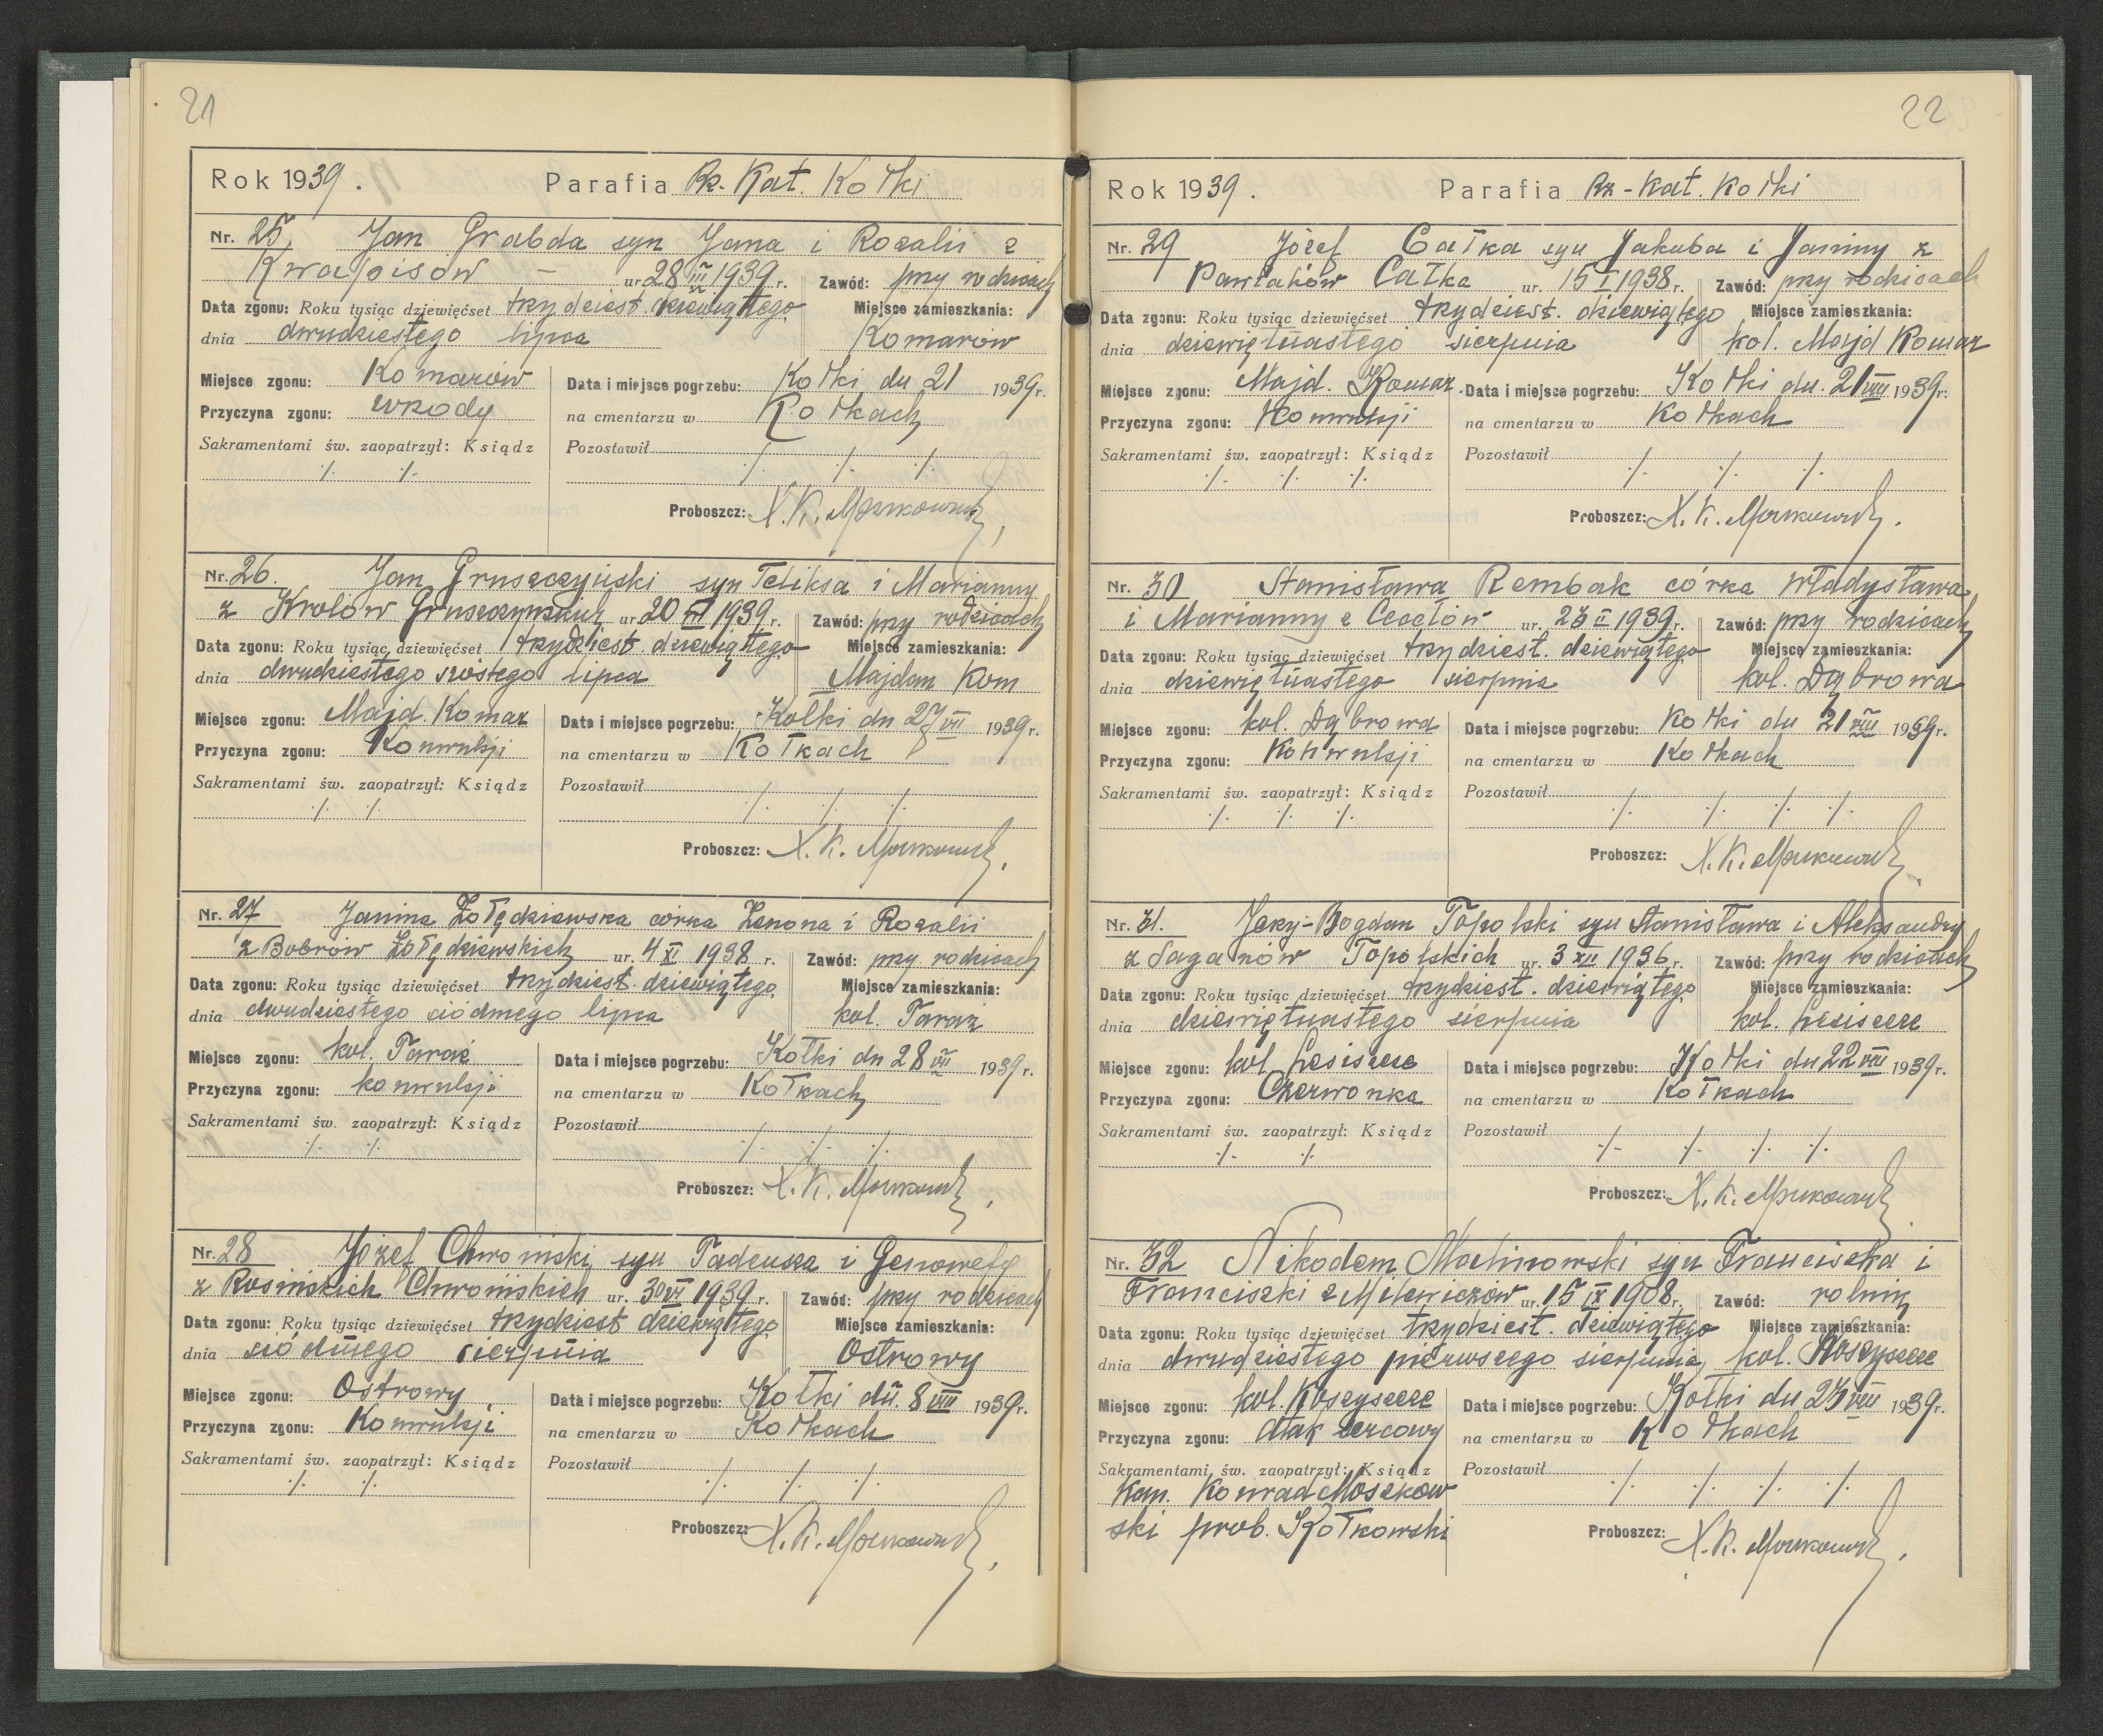 21
Rok 1939. Parafia Rz. Kat. Kołki
Nr. 25. Jan Grabda syn Jana i Rozalii z
Kwapisów – ur. 28 III 1939 r. Zawód: przy rodzicach
Data zgonu: Roku tysiąc dziewięćset trzydziest. dziewiątego Miejsce zamieszkania:
dnia dwudziestego lipca Komarów
Miejsce zgonu: Komarów Data i miejsce pogrzebu: Kołki dn 21 1939 r.
Przyczyna zgonu: wrzody na cmentarzu w Kołkach
Sakramentami św. zaopatrzył: Ksiądz Pozostawił
·/· ·/· ·/· ·/· ·/·
Proboszcz: X. K. Moszkowski
Nr. 26. Jan Gruszczyński syn Feliksa i Marianny
z Królów Gruszczyńskich ur. 20 VII 1939 r. Zawód: przy rodzicach
Data zgonu: Roku tysiąc dziewięćset trzydziest. dziewiątego Miejsce zamieszkania:
dnia dwudziestego szóstego lipca Majdan Kom
Miejsce zgonu: Majd. Komar Data i miejsce pogrzebu: Kołki dn 27 VII 1939 r.
Przyczyna zgonu: Konwulsji na cmentarzu w Kołkach
Sakramentami św. zaopatrzył: Ksiądz Pozostawił
·/· ·/· ·/· ·/· ·/·
Proboszcz: X. K. Moszkowski
Nr. 27 Janina Żołędziewska córka Zenona i Rozalii
z Bobrów Żołędziewskich ur. 4 XI 1938 r. Zawód: przy rodzicach
Data zgonu: Roku tysiąc dziewięćset trzydziest. dziewiątego Miejsce zamieszkania:
dnia dwudziestego siódmego lipca kol. Taraż
Miejsce zgonu: kol. Taraż Data i miejsce pogrzebu: Kołki dn 28 VII 1939 r.
Przyczyna zgonu: konwulsji na cmentarzu w Kołkach
Sakramentami św. zaopatrzył: Ksiądz Pozostawił
·/· ·/· ·/· ·/· ·/·
Proboszcz: X. K. Moszkowski
Nr. 28 Józef Chwoiński syn Tadeusza i Genowefy
z Rosińskich Chwoińskich ur. 30 VI 1939 r. Zawód: przy rodzicach
Data zgonu: Roku tysiąc dziewięćset trzydziest dziewiątego Miejsce zamieszkania:
dnia siódmego sierpnia Ostrowy
Miejsce zgonu: Ostrowy Data i miejsce pogrzebu: Kołki dn. 8 VIII 1939 r.
Przyczyna zgonu: Konwulsji na cmentarzu w Kołkach
Sakramentami św. zaopatrzył: Ksiądz Pozostawił
·/· ·/· ·/· ·/· ·/·
Proboszcz: X. K. Moszkowski
22
Rok 1939. Parafia Rz-Kat. Kołki
Nr. 29 Józef Całka syn Jakuba i Janiny z
Pawlaków Całka ur. 15 I 1938 r. Zawód: przy rodzicach
Data zgonu: Roku tysiąc dziewięćset trzydziest. dziewiątego Miejsce zamieszkania:
dnia dziewiętnastego sierpnia kol. Majd Komar
Miejsce zgonu: Majd. Komar. Data i miejsce pogrzebu: Kołki dn. 21 VIII 1939 r.
Przyczyna zgonu: Konwulsji na cmentarzu w Kołkach
Sakramentami św. zaopatrzył: Ksiądz Pozostawił
·/· ·/· ·/· ·/· ·/· ·/·
Proboszcz: X. K. Moszkowski.
Nr. 30 Stanisława Rembak córka Władysława
i Marianny z ur. 23 II 1939 r. Zawód: przy rodzicach
Data zgonu: Roku tysiąc dziewięćset trzydziest. dziewiątego Miejsce zamieszkania:
dnia dziewiętnastego sierpnia kol. Dąbrowa
Miejsce zgonu: kol. Dąbrowa Data i miejsce pogrzebu: Kołki dn 21 VIII 1939 r.
Przyczyna zgonu: Konwulsji na cmentarzu w Kołkach
Sakramentami św. zaopatrzył: Ksiądz Pozostawił
·/· ·/· ·/· ·/· ·/· ·/· ·/·
Proboszcz: X. K. Moszkowski
Nr. 31. Jerzy-Bogdan Topolski syn Stanisława i Aleksandry
z Saganów Topolskich ur. 3 XII 1936 r. Zawód: przy rodzicach
Data zgonu: Roku tysiąc dziewięćset trzydziest. dziewiątego Miejsce zamieszkania:
dnia dziewiętnastego sierpnia kol. Lesiszcze
Miejsce zgonu: kol. Lesiszcze Data i miejsce pogrzebu: Kołki dn 22 VIII 1939 r.
Przyczyna zgonu: Czerwonka na cmentarzu w Kołkach
Sakramentami św. zaopatrzył: Ksiądz Pozostawił
·/· ·/· ·/· ·/· ·/· ·/·
Proboszcz: X. K. Moszkowski
Nr. 32 Nikodem Malinowski syn Franciszka i
Franciszki z Milewiczów ur. 15 IX 1908 r. Zawód: rolnik
Data zgonu: Roku tysiąc dziewięćset trzydziest. dziewiątego Miejsce zamieszkania:
dnia dwudziestego pierwszego sierpnia kol. Koszyszcze
Miejsce zgonu: kol. Koszyszcze Data i miejsce pogrzebu: Kołki dn 23 VIII 1939 r.
Przyczyna zgonu: Atak sercowy na cmentarzu w Kołkach
Sakramentami św. zaopatrzył: Ksiądz Pozostawił
Kan. Konrad Moszkow ·/· ·/· ·/· ·/·
ski prob. Kołkowski Proboszcz: X. K. Moszkowski.